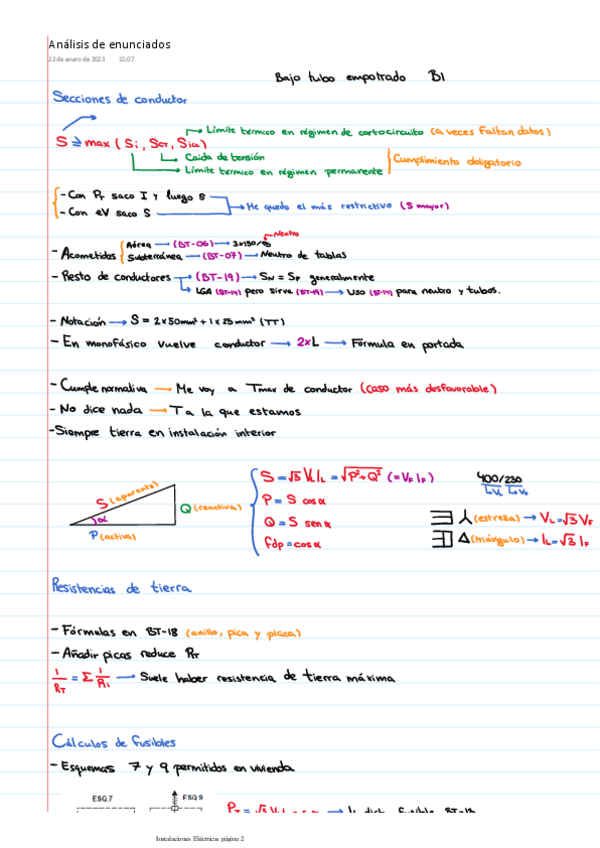 Análisis de enunciados
22 de enero de 2023 15:07
Bajo tubo empotrado B1
Secciones de conductor
S ≥ max (Si, SΔT, Sicc)
Límite térmico en régimen de cortocircuito (a veces faltan datos)
Caída de tensión
Límite térmico en régimen permanente
Cumplimiento obligatorio
- Con PT saco I y luego S
- Con eV saco S
Me quedo el más restrictivo (S mayor)
- Acometidas
Neutro
Aérea → (BT-06) → 3x150/80
Subterránea → (BT-07) → Neutro de tablas
- Resto de conductores → (BT-19) → SN = SF generalmente
LGA (BT-14) pero sirve (BT-19) → Uso (BT-14) para neutro y tubos.
- Notación → S = 2x50mm² + 1x25mm² (TT)
- En monofásico vuelve conductor → 2xL → Fórmula en portada
- Cumple normativa → Me voy a Tmax de conductor (caso más desfavorable)
- No dice nada → T a la que estamos
- Siempre tierra en instalación interior
S (aparente)
α
Q (reactiva)
P (activa)
S = √3 VL IL = √P²+Q² (= VF IF)
P = S cos α
Q = S sen α
fdp = cos α
400/230
VL VF
(estrella) → VL = √3 VF
Δ (triángulo) → IL = √3 IF
Resistencias de tierra
- Fórmulas en BT-18 (anillo, pica y placa)
- Añadir picas reduce RT
1/RT = Σ 1/Ri → Suele haber resistencia de tierra máxima
Cálculos de fusibles
- Esquemas 7 y 9 permitidos en vivienda
ESQ.7
ESQ 9
Instalaciones Eléctricas página 2